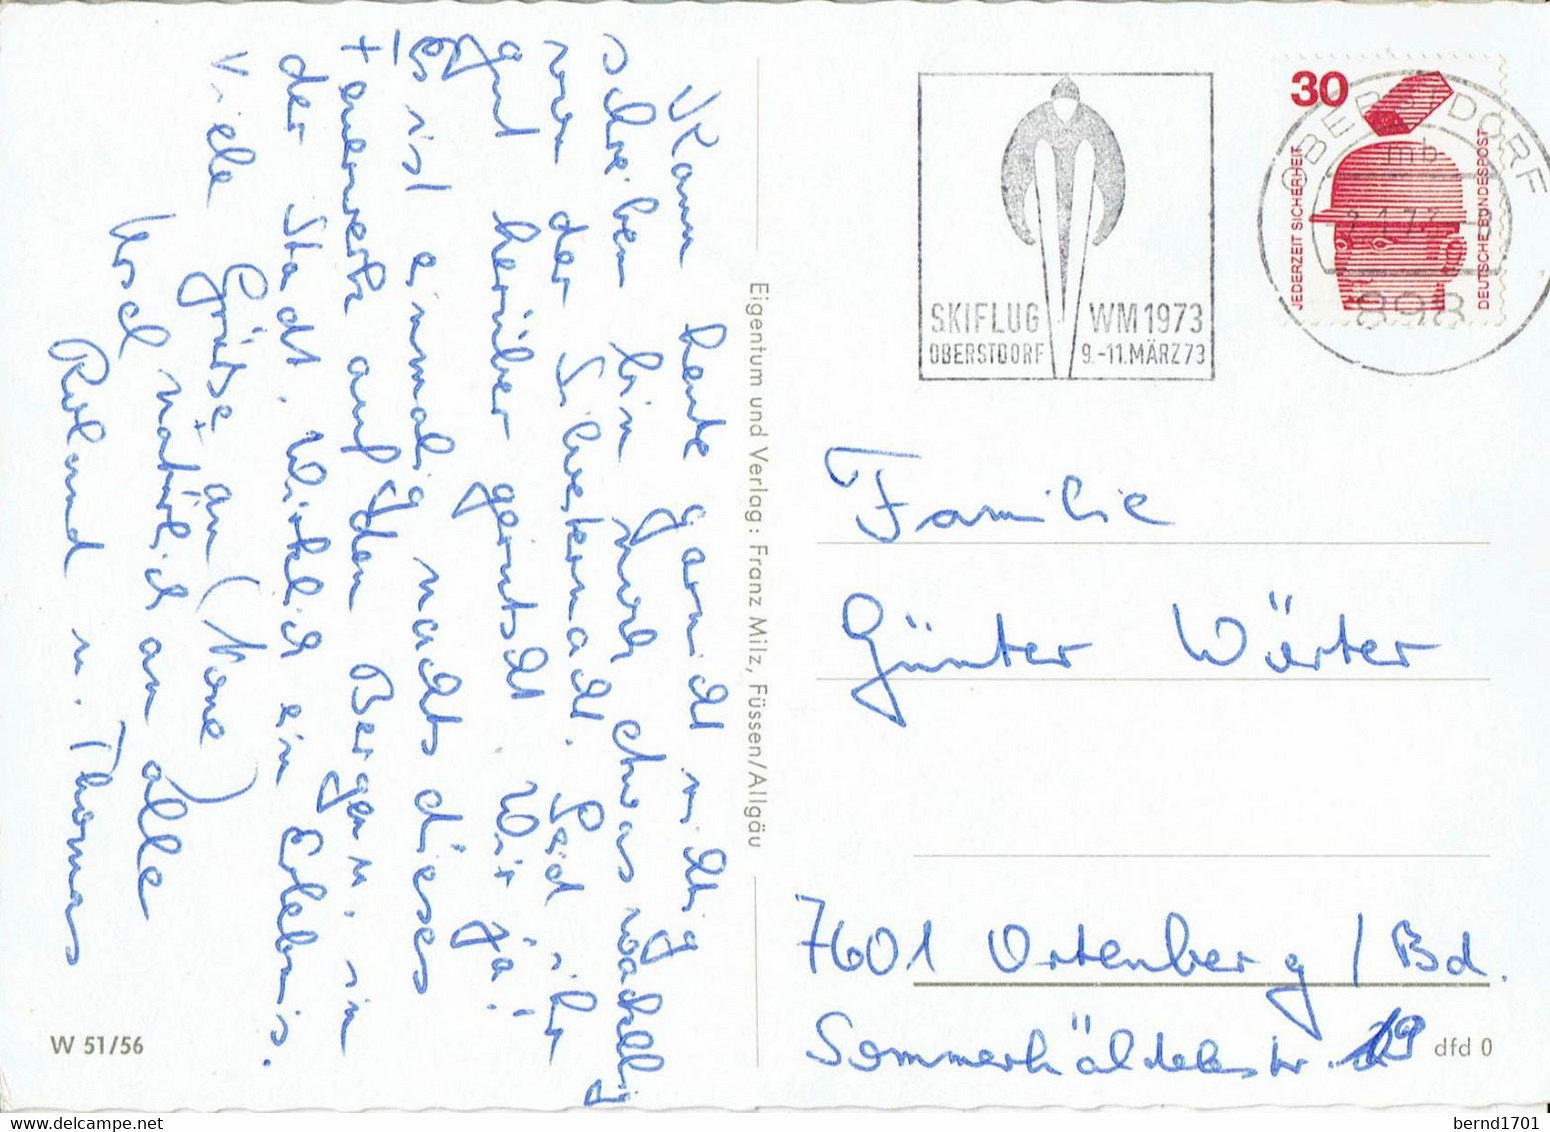 Kann heute garnicht richtig
schreiben bin noch etwas wackelig
von der Silvesternacht. Seid ihr
gut herüber gerutscht. Wir ja!
Es ist einmalig nachts dieses
Feuerwerk auf den Bergen u. in
der Stadt. Wirklich ein Erlebnis.
Viele Grüße an
Ursel natürlich an alle
Roland u. Thomas
W 51/56
Eigentum und Verlag: Franz Milz, Füssen/Allgäu
SKIFLUG WM 1973
OBERSTDORF 9.-11. MÄRZ 73
30
JEDERZEIT SICHERHEIT
DEUTSCHE BUNDESPOST
OBERSTDORF
mb
898
Familie
Günter Wörter
7601 Ortenberg / Bd.
Sommerhäldelestr. 19
dfd 0
bernd1701